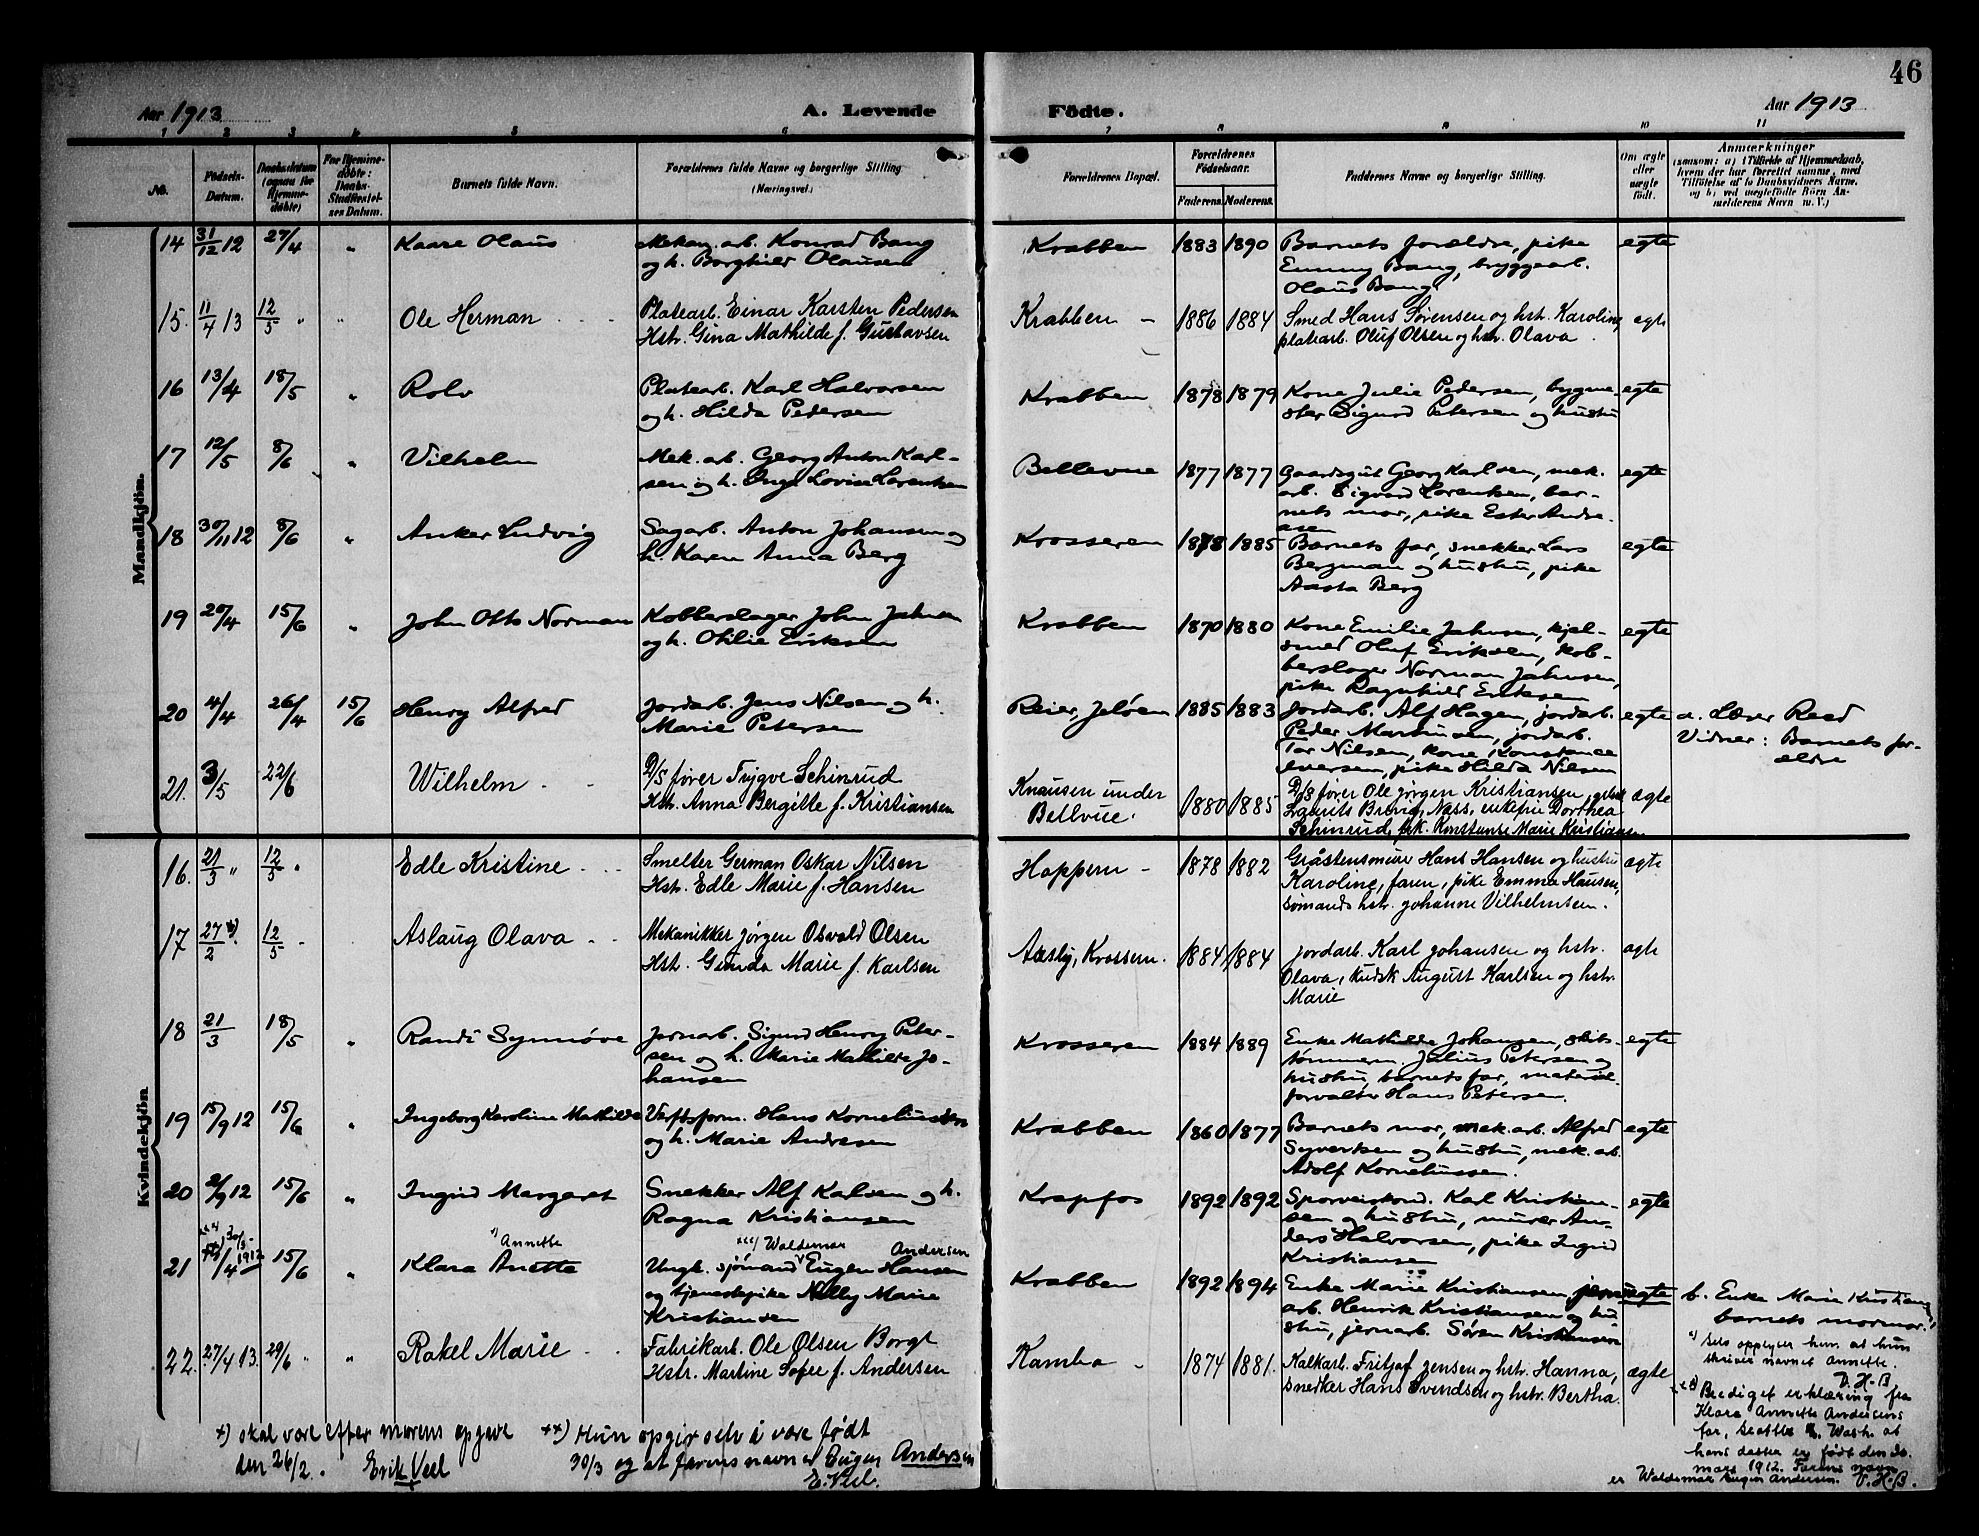 46
Aar 1913
A. Levende
Födte.
Aar 1913
1 2 3 4 5 6 7 8 9 10 11
No.
Födsels-
Datum.
Daabsdatum
(ogsaa for
Hjemme-
döbte)
For Hjemme-
döbte:
Daabs-
Stadfæstel-
ses Datum.
Barnets fulde Navn.
Forældrenes fulde Navne og borgerlige Stilling
(Næringsvei.)
Forældrenes Bopæl.
Forældrenes
Födselsaar.
Faderens. Moderens.
Faddernes Navne og borgerlige Stilling.
Om ægte
eller
uægte
født.
Anmærkninger
(saasom: a) i Tilfælde af Hjemmedaab,
hvem der har forrettet samme, med
Tilföielse af to Daabsvidners Navne,
og b) ved uægtefödte Börn An-
melderens Navn m. V.)
Mandkjön.
14 31/12 12 27/4 " Kaare Olaus
Mekan. arb. Konrad Bang
og h. Borghild Olausen
Krabben 1883 1890
Barnets forældre, pike
Emmy Bang, bryggearb.
Olaus Bang
egte
15. 11/4 13 12/5 " " Ole Herman
Platearb. Einar Karsten Pedersen
Hstr. Gina Mathilde f. Gustavsen
Krabben 1886 1884
Smed Hans Sørensen og hstr. Karoline
platearb. Oluf Olsen og hstr. Olava
egte
16 13/4 18/5 " Rolv
Platearb. Karl Halvorsen
og h. Hilda Pedersen
Krabben 1878 1879
Kone Julie Pedersen, bygme-
ster Sigurd Petersen og hustru
egte
17 12/5 8/6 " Vilhelm
Mek. arb. Georg Anton Karl-
sen og h. Inga Lovise Lorentsen
Bellevue 1877 1877
Gaardsgut Georg Karlsen, mek.
arb. Sigvard Lorentsen, bar-
nets mor, pike Ester Andre-
asen
egte
18 30/11 12 8/6 " Anker Ludvig
Sagarb. Anton Johansen og
h. Karen Anna Berg
Krosseren 1878 1885
Barnets far, snekker Lars
Bergman og hustru, pike
Aasta Berg
egte
19 20/4 15/6 " John Otto Norman
Kobberslager John Jahnsen
og h. Otilie Eriksen
Krabben 1870 1880
Kone Emilie Jahnsen, kjel-
smed Oluf Eriksen, kob-
berslager Norman Jahnsen,
pike Ragnhild Eriksen
egte
20 4/4 26/4 15/6 Henry Alfred
Jordarb. Jens Nilsen og h.
Marie Petersen
Reier, Jeløen 1885 1883
Jordarb. Alf Hagen, jordarb.
Peder Martinsen, jordarb.
Tor Nilsen, kone Konstance
Iversen, pike Hilda Nilsen
egte
a. Lærer Reed
Vidner: Barnets for-
ældre
21. 3/5 22/6 Wilhelm
D/S fører Trygve Schinrud
Hstr. Anna Bergitte f. Kristiansen
Knausen under
Bellvue.
1880 1885
D/S fører Ole Jørgen Kristiansen,
Laurits Brevig, Næss, enkefru Dorthea
Schinrud, frk. Konstanse Marie Kristiansen
ægte
Kvindekjön
16. 21/3 " 12/5 " Edle Kristine
Smelter German Oskar Nilsen
Hstr. Edle Marie f. Hansen
Hoppern 1878 1882
Gråstensmurer Hans Hansen og hustru
Karoline, faren, pike Emma Hansen,
sømands hstr. Johanne Vilhelmsen.
ægte
17 27/2 *) 12/5 Aslaug Olava
Mekanikker Jørgen Osvald Olsen
Hstr. Gunda Marie f. Karlsen
Aasly, Krossern. 1884 1884
Jordarb. Karl Johansen og hstr.
Olava, Kudsk August Karlsen og hstr.
Marie
ægte
18 21/3 18/5 " Randi Synnøve
Jernarb. Sigurd Henry Peter-
sen og h. Marie Mathilde Jo-
hansen
Krosseren 1884 1889
Enke Mathilde Johansen, skibs-
tømmerm. Julius Petersen og
hustru, barnets far, material-
forvalter Hans Petersen.
egte
19 15/9 12 15/6 " Ingeborg Karoline Mathilde
Verftsform. Hans Korneliussen
og h. Marie Andresen
Krabben 1860 1877
Barnets mor, mek. arb. Alfred
Syvertsen og hustru, mek. arb.
Adolf Korneliussen.
egte
20 2/9 12 15/6 " Ingrid Margaret
Snekker Alf Karlsen og h.
Ragna Kristiansen
Krapfos 1892 1892
Sporveiskond. Karl Kristian-
sen og hustru, murer An-
ders Halvorsen, pike Ingrid
Kristiansen
egte
21 1/4 1912 15/6 " Klara Anette
*) Annette
Ungk. sjømand Eugen Hansen
***) Waldemar Andersen
og tjenestepike Nelly Marie
Kristiansen
Krabben 1892 1894
Enke Marie Kristiansen, jern-
arb. Henrik Kristiansen og hu-
stru, jernarb. Søren Kristiansen
uegte
b. Enke Marie Kristiansen,
barnets mormor.
*) Selv opplyser hun at hun
skriver navnet Annette.
V. H-B.
Beediget erklæring fra
Klara Annette Andersens
far, Seattle, Wash. at
hans datter er født den 30.
mars 1912. Farens navn
er Waldemar Eugen Andersen. V. H-B.
22. 27/4 13. 29/6 " " Rakel Marie
Fabrikarb. Ole Olsen Borge
Hstr. Martine Sofie f. Andersen
Kambo 1874 1881.
Kalkarb. Fritjof Jensen og hstr. Hanna,
snedker Hans Svendsen og hstr. Bertha.
ægte
*) skal være efter morens opgave
den 26/2. Erik Veel
**) Hun opgir selv å være født
30/3 og at farens navn er Eugen Andersen
E. Veel.